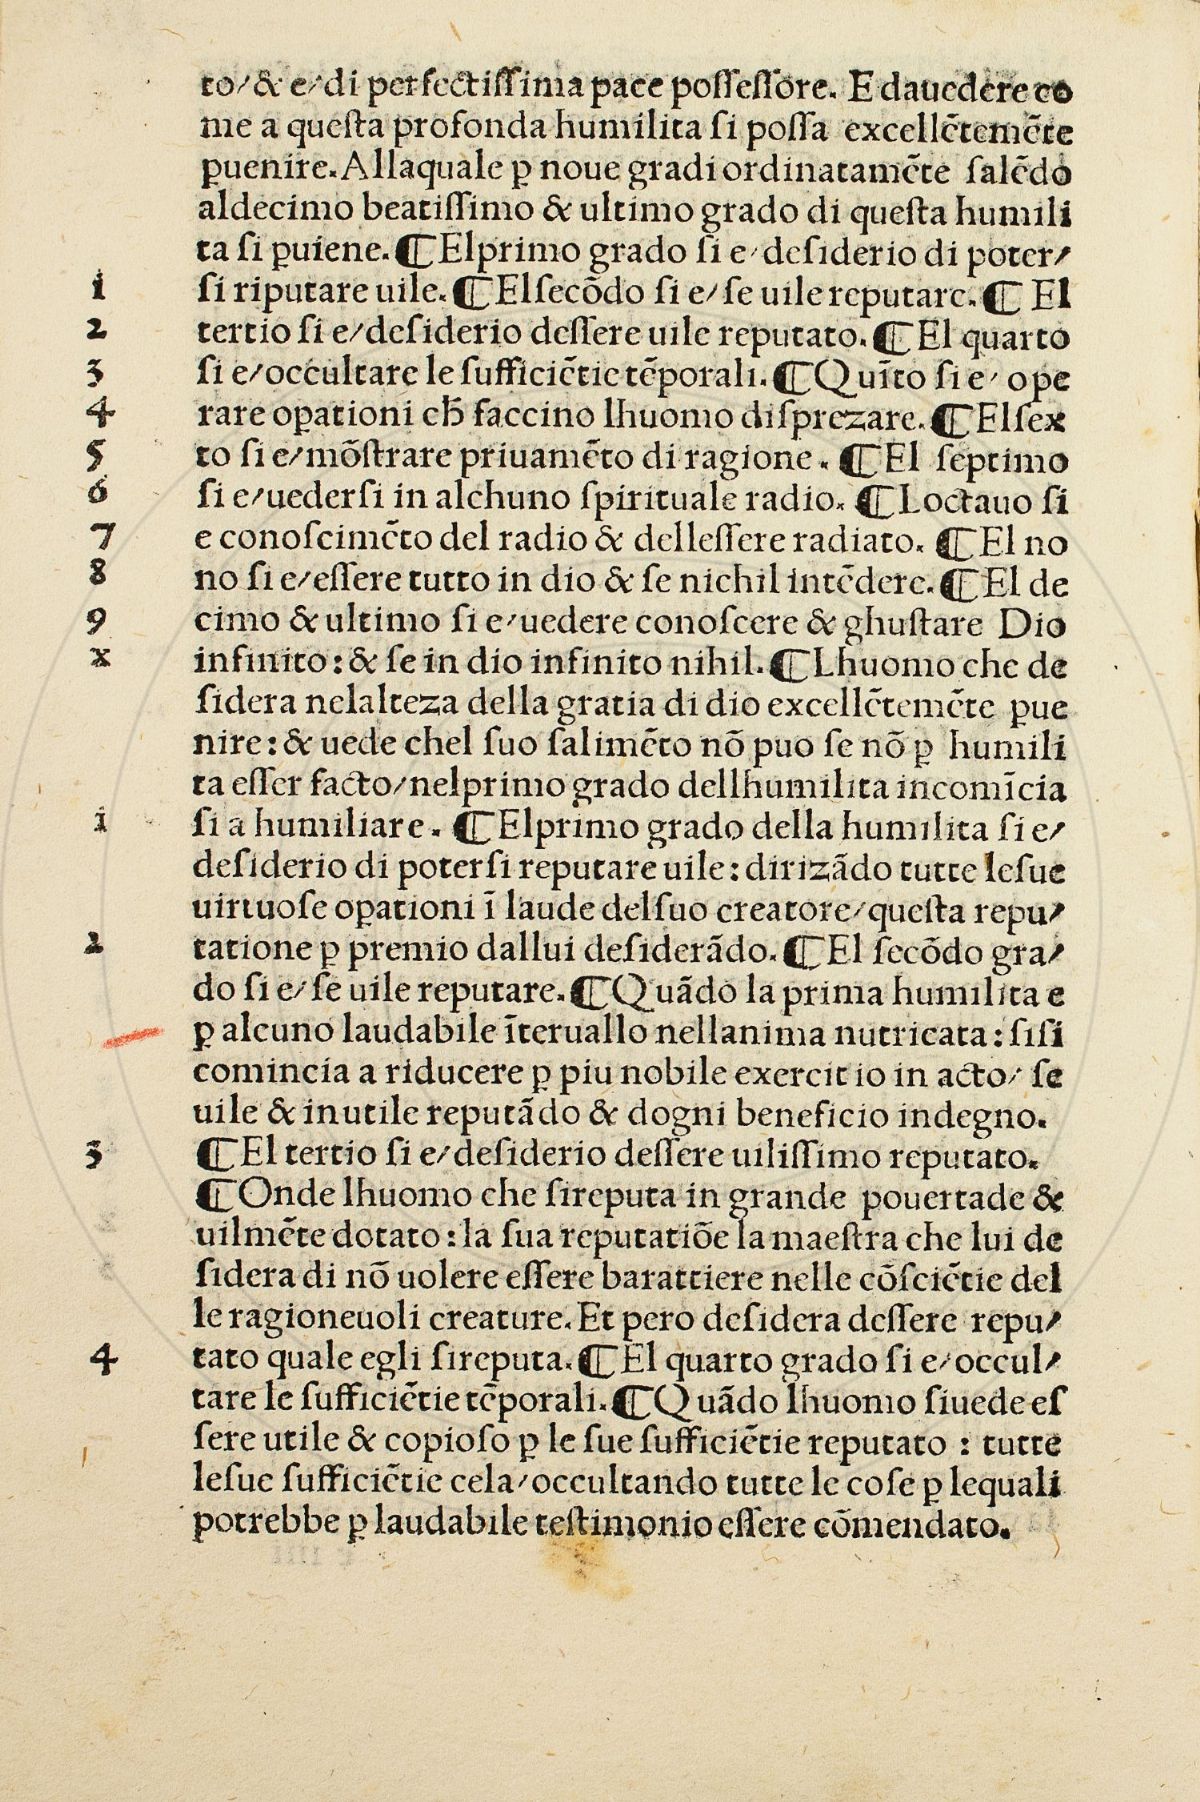 to/ & e/ di perfectissima pace possessore. E dauedere co
me a questa profonda humilita si possa excellētemēte
ꝑuenire. Allaquale ꝑ noue gradi ordinatamēte salēdo
aldecimo beatissimo & ultimo grado di questa humili
ta si ꝑuiene. ¶ Elprimo grado si e/ desiderio di poter/
i si riputare uile. ¶ Elsecōdo si e/ se uile reputare. ¶ El
2 tertio si e/ desiderio dessere uile reputato. ¶ El quarto
3 si e/ occultare le sufficiētie tēporali. ¶ Quīto si e/ ope
4 rare oꝑationi ch̄ faccino lhuomo disprezare. ¶ Elsex
5 to si e/ mōstrare priuamēto di ragione. ¶ El septimo
6 si e/ uedersi in alchuno spirituale radio. ¶ Loctauo si
7 e conoscimēto del radio & dellessere radiato. ¶ El no
8 no si e/ essere tutto in dio & se nichil intēdere. ¶ El de
9 cimo & ultimo si e/ uedere conoscere & ghustare Dio
x infinito: & se in dio infinito nihil. ¶ Lhuomo che de
sidera nelalteza della gratia di dio excellētemēte ꝑue
nire: & uede chel suo salimēto nō puo se nō ꝑ humili
ta esser facto/ nelprimo grado dellhumilita incomīcia
i si a humiliare. ¶ Elprimo grado della humilita si e/
desiderio di potersi reputare uile: dirizādo tutte lesue
uirtuose oꝑationi ī laude delsuo creatore/ questa repu/
2 tatione ꝑ premio dallui desiderādo. ¶ El secōdo gra/
do si e/ se uile reputare. ¶ Quādo la prima humilita e
ꝑ alcuno laudabile īteruallo nellanima nutricata: sisi
comincia a riducere ꝑ piu nobile exercitio in acto/ se
uile & inutile reputādo & dogni beneficio indegno.
3 ¶ El tertio si e/ desiderio dessere uilissimo reputato.
¶ Onde lhuomo che sireputa in grande pouertade &
uilmēte dotato: la sua reputatiōe la maestra che lui de
sidera di nō uolere essere barattiere nelle cōsciētie del
le ragioneuoli creature. Et pero desidera dessere repu/
4 tato quale egli sireputa. ¶ El quarto grado si e/ occul/
tare le sufficiētie tēporali. ¶ Quādo lhuomo siuede es
sere utile & copioso ꝑ le sue sufficiētie reputato : tutte
lesue sufficiētie cela/ occultando tutte le cose ꝑ lequali
potrebbe ꝑ laudabile testimonio essere cōmendato.